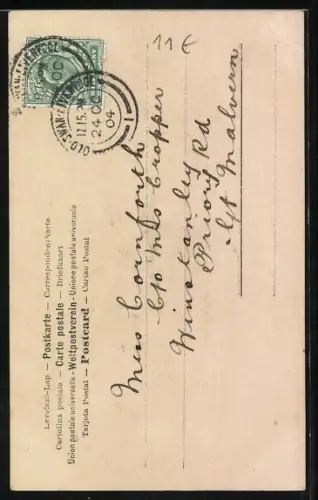 11 €
OLD SWAN · LIVERPOOL
12.15 PM
24 OC
04
1
Levelezö-Lap — Postkarte — Correspondenzkarte
Cartolina postale — Carte postale — Briefkaart
Union postale universelle — Weltpostverein — Union postale universelle
Tarjeta Postal — Postcard — Cartao Postal
Miss Cornforth
C/o Mrs Cropper
Winstanley
Priory Rd
Gt Malvern